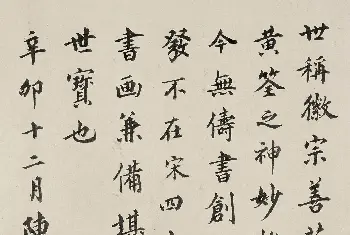 世稱徽宗善
黄筌之神妙
今無儔書創
發不在宋四
書画兼備
世寳也
辛卯十二月陳